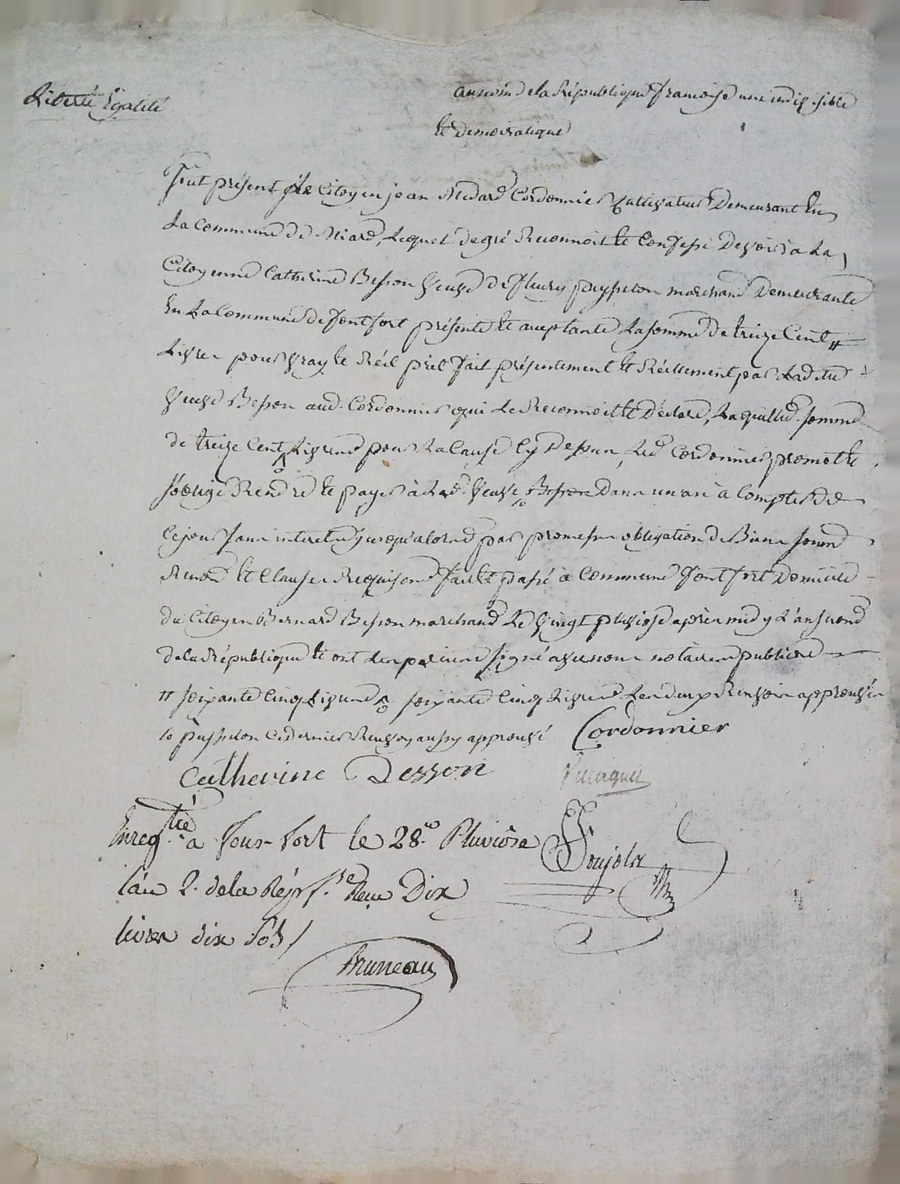 Liberté Egalité
au nom de la République françoise une indivisible
et démocratique
fut présent le Citoyen jean Medard Cordonnier Cultivateur Demeurant en
La Commune de Lequel de gré Reconnoit et Confesse Devoir à La
Citoyenne Catherine Besson Veuve de fleury peysselon marchand Demeurante
En La Commune de fontfort présente et aceptante La somme de treize Cent 〃
Livres pour Vray et Réél prêt fait présentement et Réellement par Ladite
Veuve Besson aud. Cordonnier qui Le Reconnoit et Déclare, Laquelle d. somme
de treize Cent Livres pour La Cause Cy Dessus, Led. Cordonnier promet et
s'oblige Rendre et payer à Lad. Veuve Besson Dans un an à Compter de
Ce jour sans interets jusqu'alors par promesse obligation de Biens soumo
Renon et Clauses Requises fait et passé à Commune fontfort Domicile
du Citoyen Bernard Besson marchand Le Vingt pluviose après midy L'an second
de la République et ont Les parties signé avec nous notaire public
〃 soixante Cinq Livres soixante Cinq Livres Les deux Renvois approuvés
lo peysselon Ce dernier Renvoy aussy approuvé Cordonnier
Catherine Besson
Enregtré à Fons-fort le 28 Pluviôse
l'an 2. de la Rép. fse Reçu Dix
livres dix sols /
Bruneau